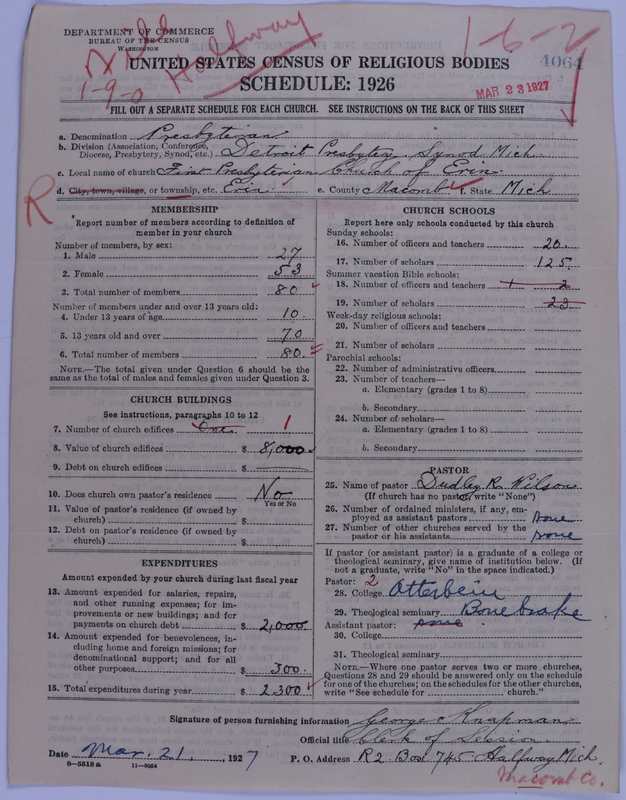 DEPARTMENT OF COMMERCE
BUREAU OF THE CENSUS
WASHINGTON
Halfway
1-9-0
1-6-2
4064
UNITED STATES CENSUS OF RELIGIOUS BODIES
SCHEDULE: 1926
MAR 23 1927
FILL OUT A SEPARATE SCHEDULE FOR EACH CHURCH. SEE INSTRUCTIONS ON THE BACK OF THIS SHEET
a. Denomination Presbyterian
b. Division (Association, Conference, Diocese, Presbytery, Synod, etc.) Detroit Presbytery Synod Mich.
c. Local name of church First Presbyterian Church of Erin
R
d. City, town, village, or township, etc. Erin e. County Macomb f. State Mich
MEMBERSHIP
Report number of members according to definition of
member in your church
Number of members, by sex:
1. Male 27
2. Female 53
3. Total number of members 80
Number of members under and over 13 years old:
4. Under 13 years of age 10
5. 13 years old and over 70
6. Total number of members 80
NOTE.—The total given under Question 6 should be the
same as the total of males and females given under Question 3.
CHURCH BUILDINGS
See instructions, paragraphs 10 to 12
7. Number of church edifices One 1
8. Value of church edifices $ 8,000
9. Debt on church edifices $
10. Does church own pastor's residence No
Yes or No
11. Value of pastor's residence (if owned by
church) $
12. Debt on pastor's residence (if owned by
church) $
EXPENDITURES
Amount expended by your church during last fiscal year
13. Amount expended for salaries, repairs,
and other running expenses; for im-
provements or new buildings; and for
payments on church debt $ 2,000
14. Amount expended for benevolences, in-
cluding home and foreign missions; for
denominational support; and for all
other purposes $ 300
15. Total expenditures during year $ 2300
CHURCH SCHOOLS
Report here only schools conducted by this church
Sunday schools:
16. Number of officers and teachers 20
17. Number of scholars 125
Summer vacation Bible schools:
18. Number of officers and teachers 1 2
19. Number of scholars 23
Week-day religious schools:
20. Number of officers and teachers
21. Number of scholars
Parochial schools:
22. Number of administrative officers
23. Number of teachers—
a. Elementary (grades 1 to 8)
b. Secondary
24. Number of scholars—
a. Elementary (grades 1 to 8)
b. Secondary
PASTOR
25. Name of pastor Dudley R. Wilson
(If church has no pastor, write "None")
26. Number of ordained ministers, if any, em-
ployed as assistant pastors none
27. Number of other churches served by the
pastor or his assistants none
If pastor (or assistant pastor) is a graduate of a college or
theological seminary, give name of institution below. (If
not a graduate, write "No" in the space indicated.)
Pastor: 2
28. College Otterbein
29. Theological seminary Bonebrake
Assistant pastor: none
30. College
31. Theological seminary
NOTE.—Where one pastor serves two or more churches,
Questions 28 and 29 should be answered only on the schedule
for one of the churches; on the schedules for the other churches,
write "See schedule for church."
Signature of person furnishing information George C Knapman
Official title Clerk of Session
Date Mar. 21, 1927 P. O. Address R2 Box 745 Halfway Mich.
8-5518a 11-9264
Macomb Co.